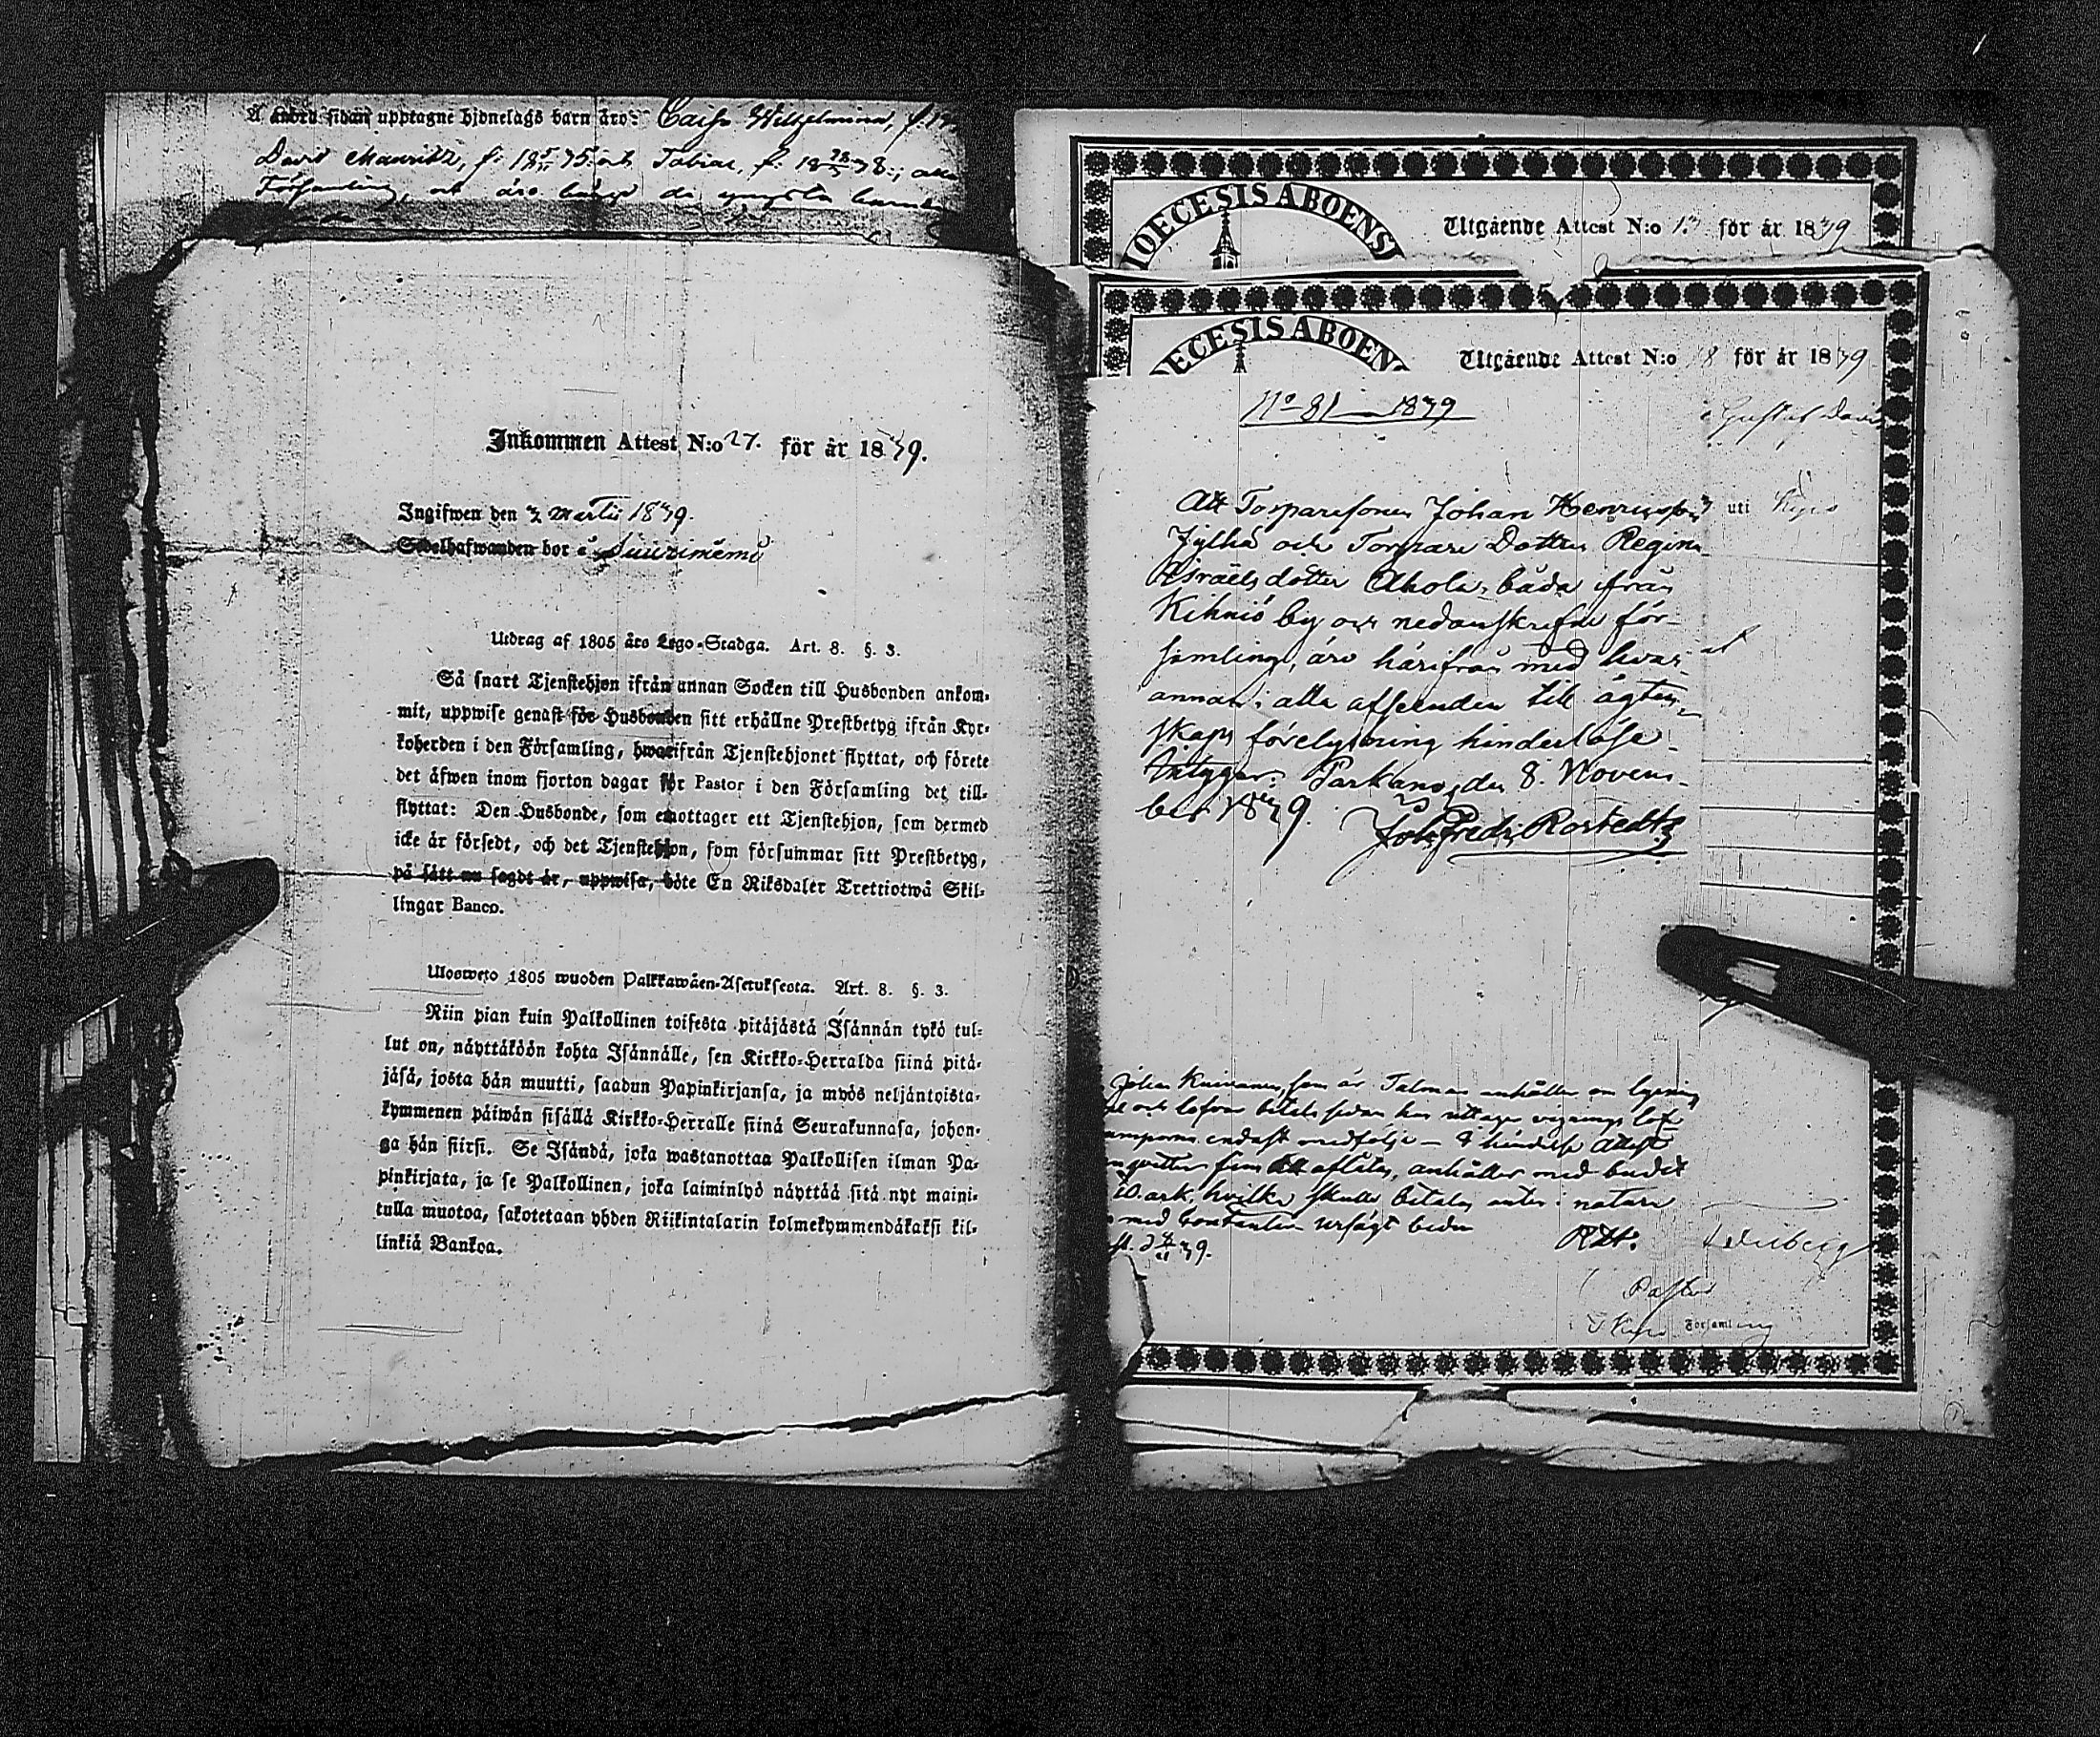 A andra sidan upptagne hjonelags barn äro: Caisa Wilhelmina, f.
David Mauritz, f. 18 75 och Tobias, f. 18 78; alla
Församling, och äro längs de yngsta barnen
Inkommen Attest N:o 27. för år 1879.
Ingifwen den 2/3 Martii 1879.
Sedelhafwanden bor å Suurimemi
Utdrag af 1805 års Lego-Stadga. Art. 8. §. 3.
Så snart Tjenstehjon ifrån annan Socken till Husbonden ankom-
mit, uppwise genast för Husbonden sitt erhållne Prestbetyg ifrån Kyr-
koherden i den Församling, hwarifrån Tjenstehjonet flyttat, och förete
det äfwen inom fjorton dagar för Pastor i den Församling det till-
flyttat: Den Husbonde, som emottager ett Tjenstehjon, som dermed
icke är försedt, och det Tjenstehjon, som försummar sitt Prestbetyg,
på sätt nu sagdt är, uppwisa, böte En Riksdaler Trettiotwå Skil-
lingar Banco.
Ulosweto 1805 wuoden Palkkawäen-Asetuksesta. Art. 8. §. 3.
Niin pian kuin Palkollinen toisesta pitäjästä Isännän tykö tul-
lut on, näyttäköön kohta Isännälle, sen Kirkko-Herralda siinä pitä-
jäsä, josta hän muutti, saadun Papinkirjansa, ja myös neljäntoista-
kymmenen päiwän sisällä Kirkko-Herralle siinä Seurakunnasa, johon-
ga hän siirsi. Se Isändä, joka wastanottaa Palkollisen ilman Pa-
pinkirjata, ja se Palkollinen, joka laiminlyö näyttää sitä nyt maini-
tulla muotoa, sakotetaan yhden Riikintalarin kolmekymmendäkaksi kil-
linkiä Bankoa.
DIOECESIS ABOENSI
Utgående Attest N:o 13 för år 1879
ECESIS ABOEN
Utgående Attest N:o 18 för år 1879
No 81 1879
Gustaf David
Att Torparesonen Johan Henriksson
uti
Jylhä och Torpare Dottern Regina
Israelsdotter Ahola, båda från
Kihniö by och nedanskrefne för-
samling, äro härifrån med hvar-
annan i alla afseenden till ägten-
skaps förelysning hinderlöse.
Intygar. Parkano, den 8. Novem-
ber 1879. Joh. Fredr. Rostedt
Johan Kuivanen, som är Talman anhåller om lysning
och lofvar betala sedan han uttager vignings lof
endast medfölje - 8 hinderlös Attest
anhåller med budet
10. ark, hvilka skulle betalas antingen i natura
med
79.
RDt.
Pastor
Församling